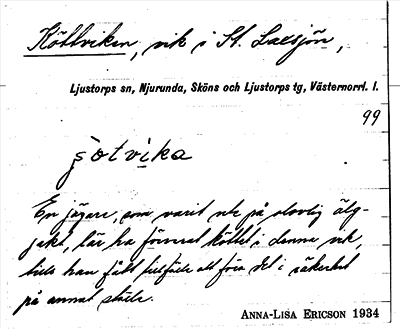 Köttviken, vik i St. Laxsjön,
Ljustorps sn, Njurunda, Sköns och Ljustorps tg, Västernorrl. l.
99
ȿötvika
En jägare, som varit ute på olovlig älg-
jakt, lär ha förvarat köttet i denna vik,
tills han fått tillfälle att föra det i säkerhet
på annat ställe.
ANNA-LISA ERICSON 1934